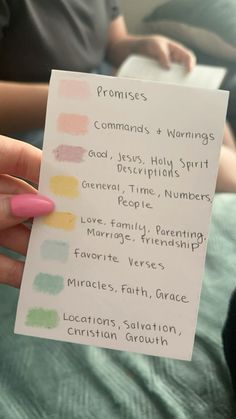 Promises
Commands + Warnings
God, Jesus, Holy Spirit
Descriptions
General, Time, Numbers,
People
Love, Family, Parenting,
Marriage, friendship
favorite Verses
Miracles, Faith, Grace
Locations, Salvation,
christian Growth